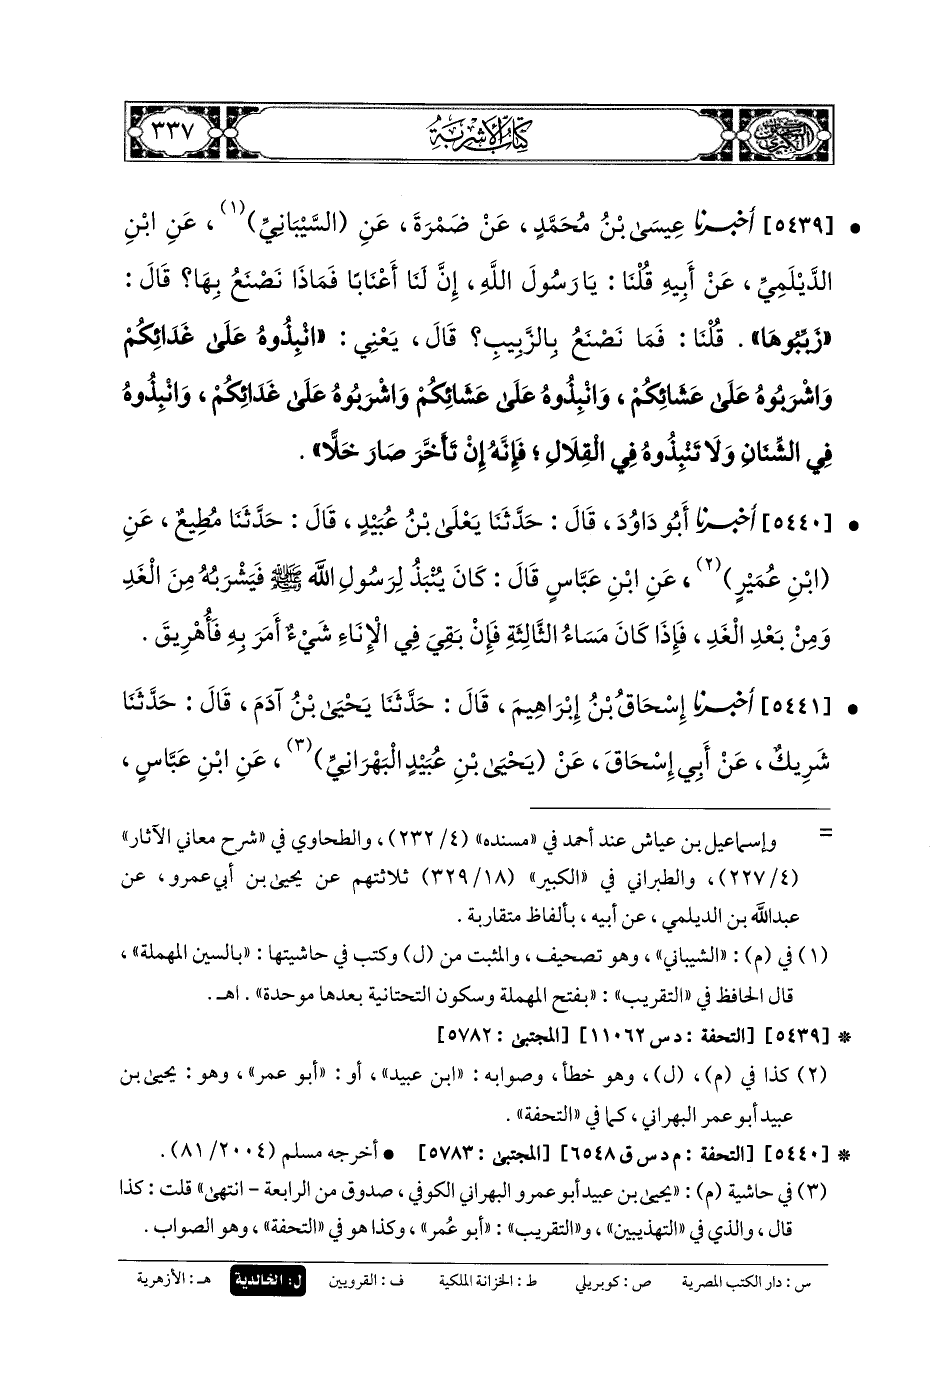 ٣٣٧ كتاب الأشربة
• [٥٤٣٩] أخبرنا عِيسَىٰ بْنُ مُحَمَّدٍ، عَنْ ضَمْرَةَ، عَنِ (السَّيْبَانِيِّ)(١)، عَنِ ابْنِ
الدَّيْلَمِيِّ، عَنْ أَبِيهِ قُلْنَا: يَا رَسُولَ اللَّهِ، إِنَّ لَنَا أَعْنَابًا فَمَاذَا نَصْنَعُ بِهَا؟ قَالَ:
«زَبِّبُوهَا». قُلْنَا: فَمَا نَصْنَعُ بِالزَّبِيبِ؟ قَالَ، يَعْنِي: «انْبِذُوهُ عَلَىٰ غَدَائِكُمْ
وَاشْرَبُوهُ عَلَىٰ عَشَائِكُمْ، وَانْبِذُوهُ عَلَىٰ عَشَائِكُمْ وَاشْرَبُوهُ عَلَىٰ غَدَائِكُمْ، وَانْبِذُوهُ
فِي الشِّنَانِ وَلَا تَنْبِذُوهُ فِي الْقِلَالِ؛ فَإِنَّهُ إِنْ تَأَخَّرَ صَارَ خَلًّا».
• [٥٤٤٠] أخبرنا أَبُو دَاوُدَ، قَالَ: حَدَّثَنَا يَعْلَىٰ بْنُ عُبَيْدٍ، قَالَ: حَدَّثَنَا مُطِيعٌ، عَنِ
(ابْنِ عُمَيْرٍ)(٢)، عَنِ ابْنِ عَبَّاسٍ قَالَ: كَانَ يُنْبَذُ لِرَسُولِ اللَّهِ ﷺ فَيَشْرَبُهُ مِنَ الْغَدِ
وَمِنْ بَعْدِ الْغَدِ، فَإِذَا كَانَ مَسَاءُ الثَّالِثَةِ فَإِنْ بَقِيَ فِي الْإِنَاءِ شَيْءٌ أَمَرَ بِهِ فَأُهْرِيقَ.
• [٥٤٤١] أخبرنا إِسْحَاقُ بْنُ إِبْرَاهِيمَ، قَالَ: حَدَّثَنَا يَحْيَىٰ بْنُ آدَمَ، قَالَ: حَدَّثَنَا
شَرِيكٌ، عَنْ أَبِي إِسْحَاقَ، عَنْ (يَحْيَىٰ بْنِ عُبَيْدٍ الْبَهْرَانِيِّ)(٣)، عَنِ ابْنِ عَبَّاسٍ،
= وإسماعيل بن عياش عند أحمد في «مسنده» (٤/ ٢٣٢)، والطحاوي في «شرح معاني الآثار»
(٤/ ٢٢٧)، والطبراني في «الكبير» (١٨/ ٣٢٩) ثلاثتهم عن يحيىٰ بن أبي عمرو، عن
عبدالله بن الديلمي، عن أبيه، بألفاظ متقاربة.
(١) في (م): «الشيباني»، وهو تصحيف، والمثبت من (ل) وكتب في حاشيتها: «بالسين المهملة»،
قال الحافظ في «التقريب»: «بفتح المهملة وسكون التحتانية بعدها موحدة». اهـ.
* [٥٤٣٩] [التحفة: د س ١١٠٦٢] [المجتبىٰ: ٥٧٨٢]
(٢) كذا في (م)، (ل)، وهو خطأ، وصوابه: «ابن عبيد»، أو: «أبو عمر»، وهو: يحيىٰ بن
عبيد أبو عمر البهراني، كما في «التحفة».
* [٥٤٤٠] [التحفة: م د س ق ٦٥٤٨] [المجتبىٰ: ٥٧٨٣] • أخرجه مسلم (٢٠٠٤/ ٨١).
(٣) في حاشية (م): «يحيىٰ بن عبيد أبو عمرو البهراني الكوفي، صدوق من الرابعة - انتهىٰ» قلت: كذا
قال، والذي في «التهذيبين»، و«التقريب»: «أبو عُمر»، وكذا هو في «التحفة»، وهو الصواب.
س: دار الكتب المصرية ص: كوبريلي ط: الخزانة الملكية ف: القرويين ل: الخالدية هـ: الأزهرية